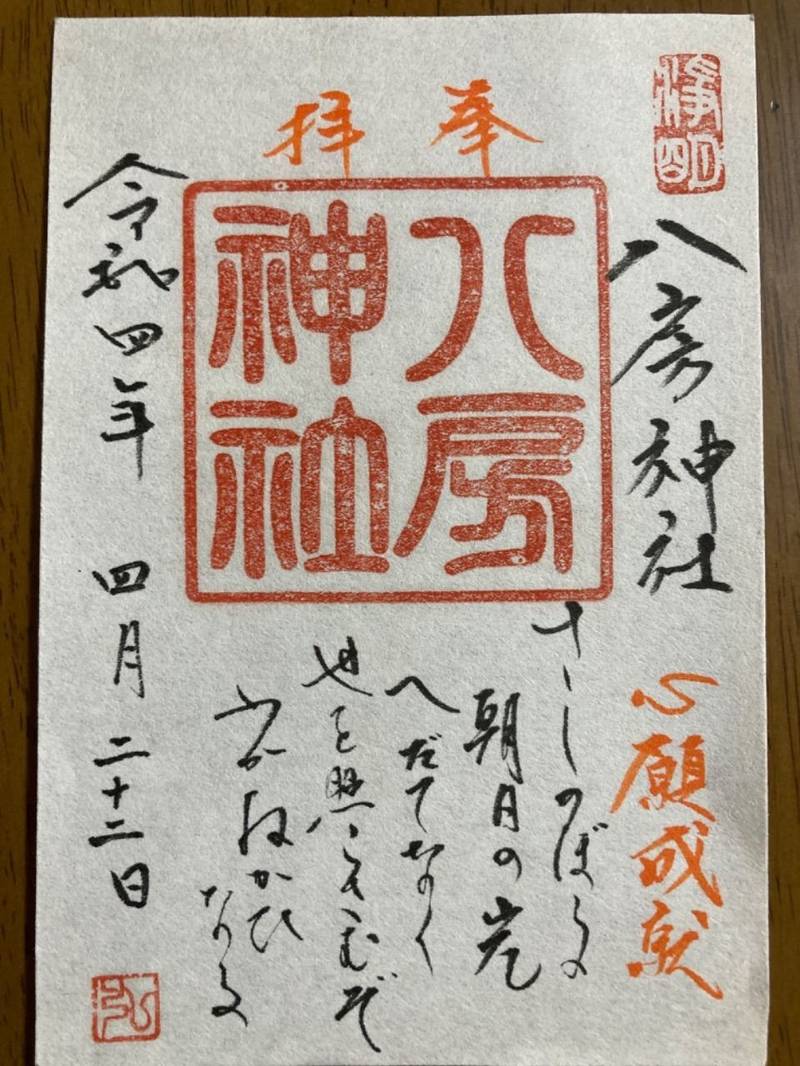 浄明
八房神社
心願成就
奉拝
八房
神社
さしのぼる
朝日の光
へだてなく
世を照らさむぞ
わがねがひ
なる
令和四年 四月 二十二日